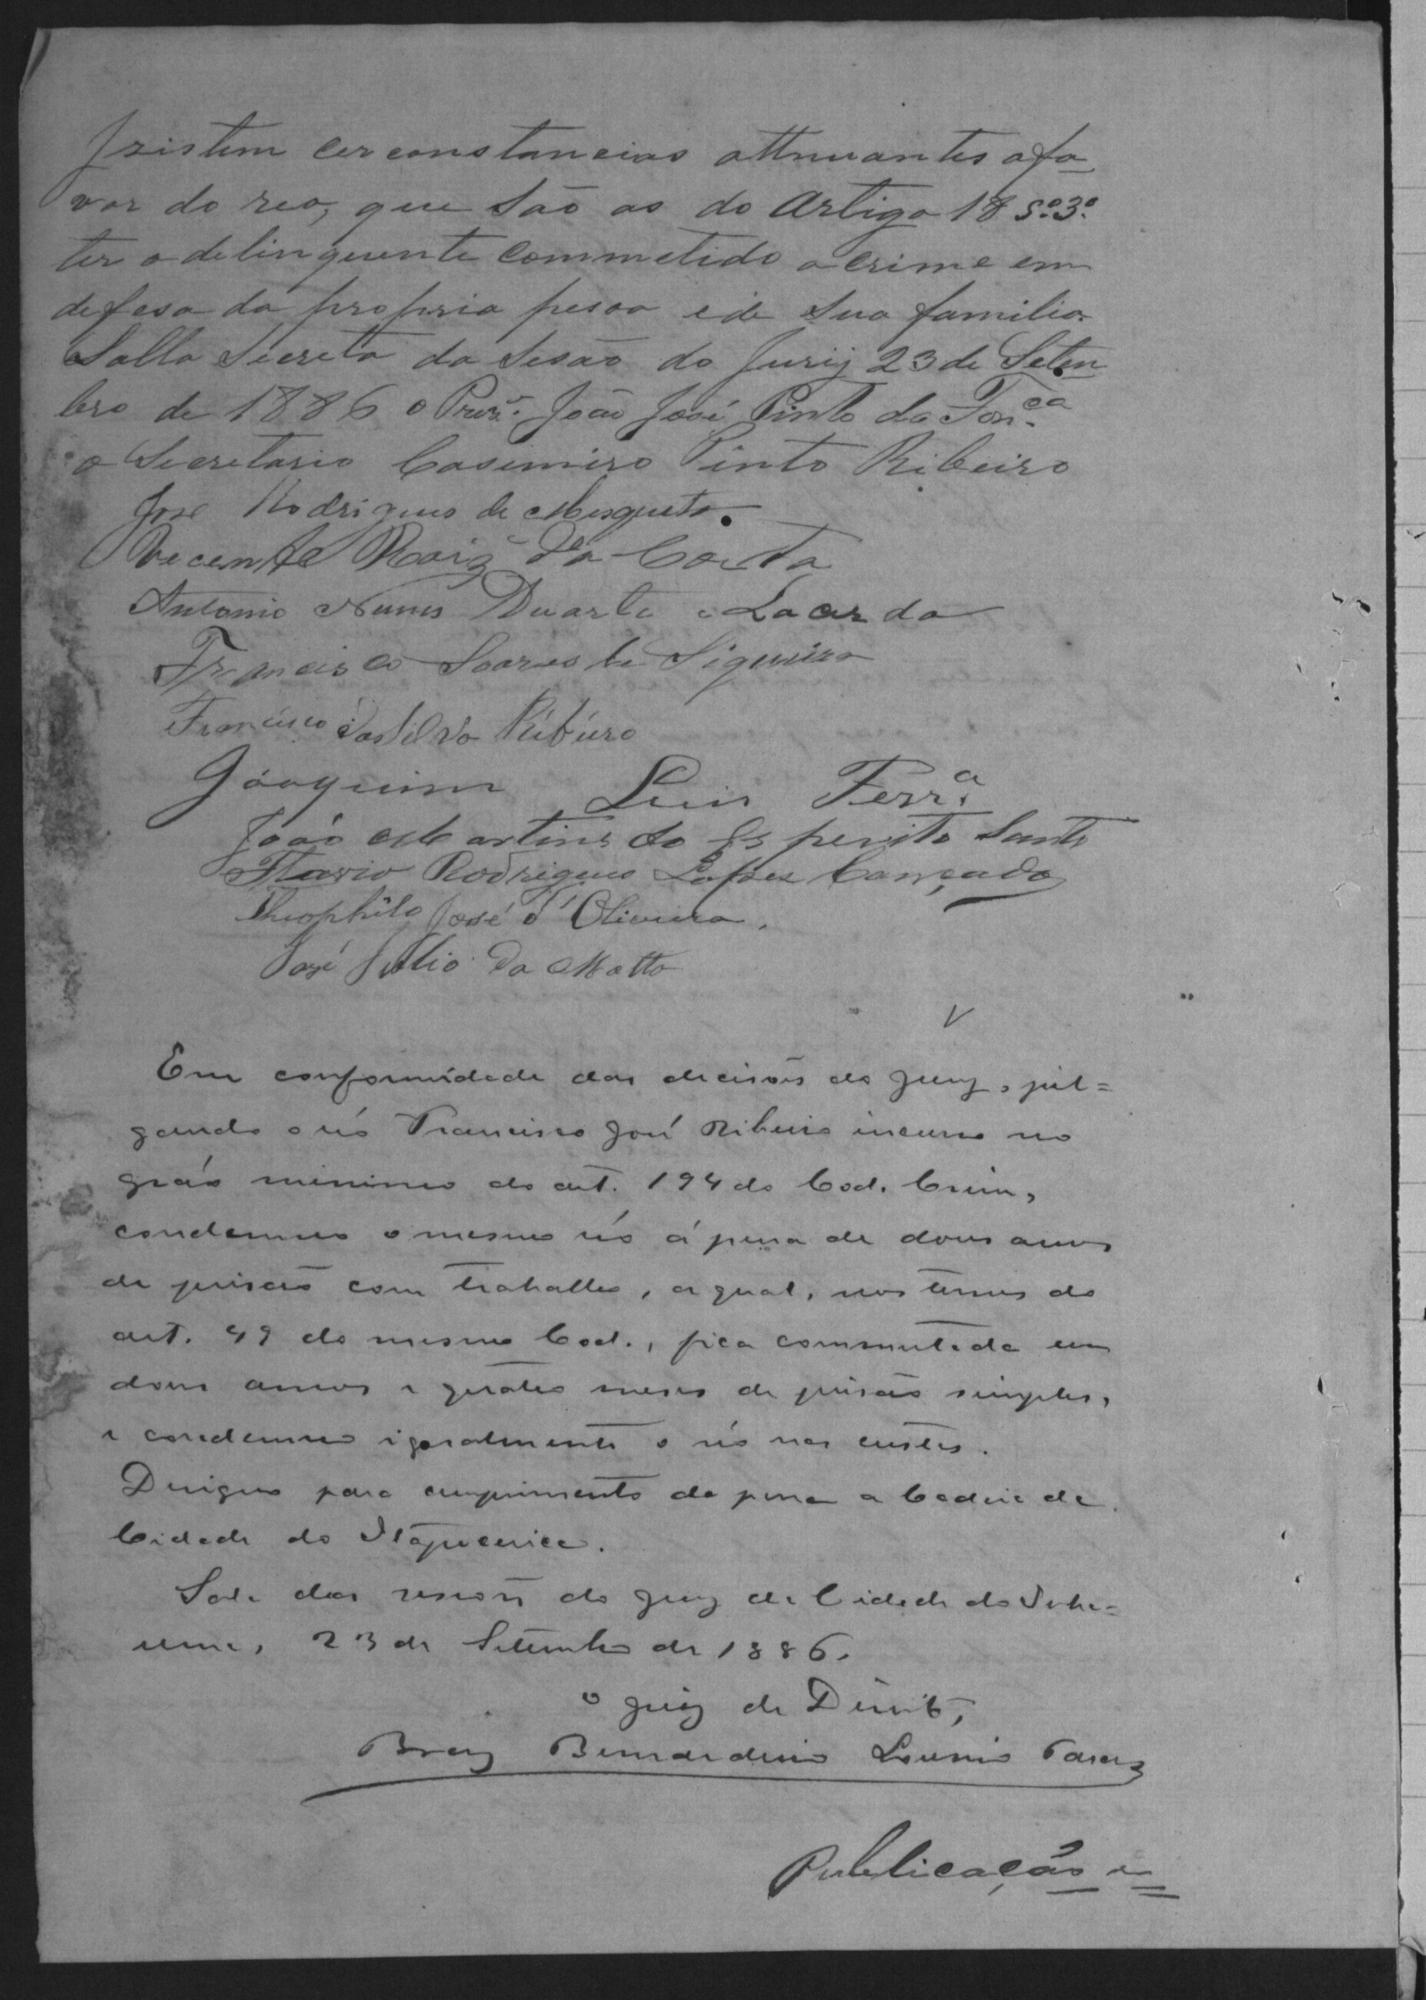 Izistem cerconstancias attenuantes afa
vor do reo, que são as do Artigo 18 §º 3º
ter o delinquente commetido o crime em
defesa da propria pesoa e de sua familia.
Salla Secreta da Sesão do Jury 23 de Setem
bro de 1886 o Prezº. João José Pinto da Fonca
o Secretario Casimiro Pinto Ribeiro
José Rodrigues de Mesquita.
Vecente Roiz da Costa
Antonio Nunes Duarte Lacerda
Francisco Soares de Siqueira
Francisco da Silva Ribeiro
Joaquim Luis Ferrª
João Martins do Esperito Santo
Flavio Rodrigues Lopes Cançado
Theophilo José d'Oliveira.
José Julio da Matta
Em conformidade das decisões do Jury, jul=
gando o réo Francisco José Ribeiro incurso no
gráo minimo do art. 194 do Cod. Crim,
condemno o mesmo réo á pena de dous annos
de prisão com trabalho, a qual, nos termos do
art. 49 do mesmo Cod., fica commutada em
dous annos e quatro meses de prisão simples,
e condemno igualmente o réo nas custas.
Designo para cumprimento da pena a Cadeia da
Cidade do Itapecerica.
Sala das sessões do Jury da Cidade do Inha=
uma, 23 de Setembro de 1886.
o Juiz de Direito,
Braz Bernardino
Publicação